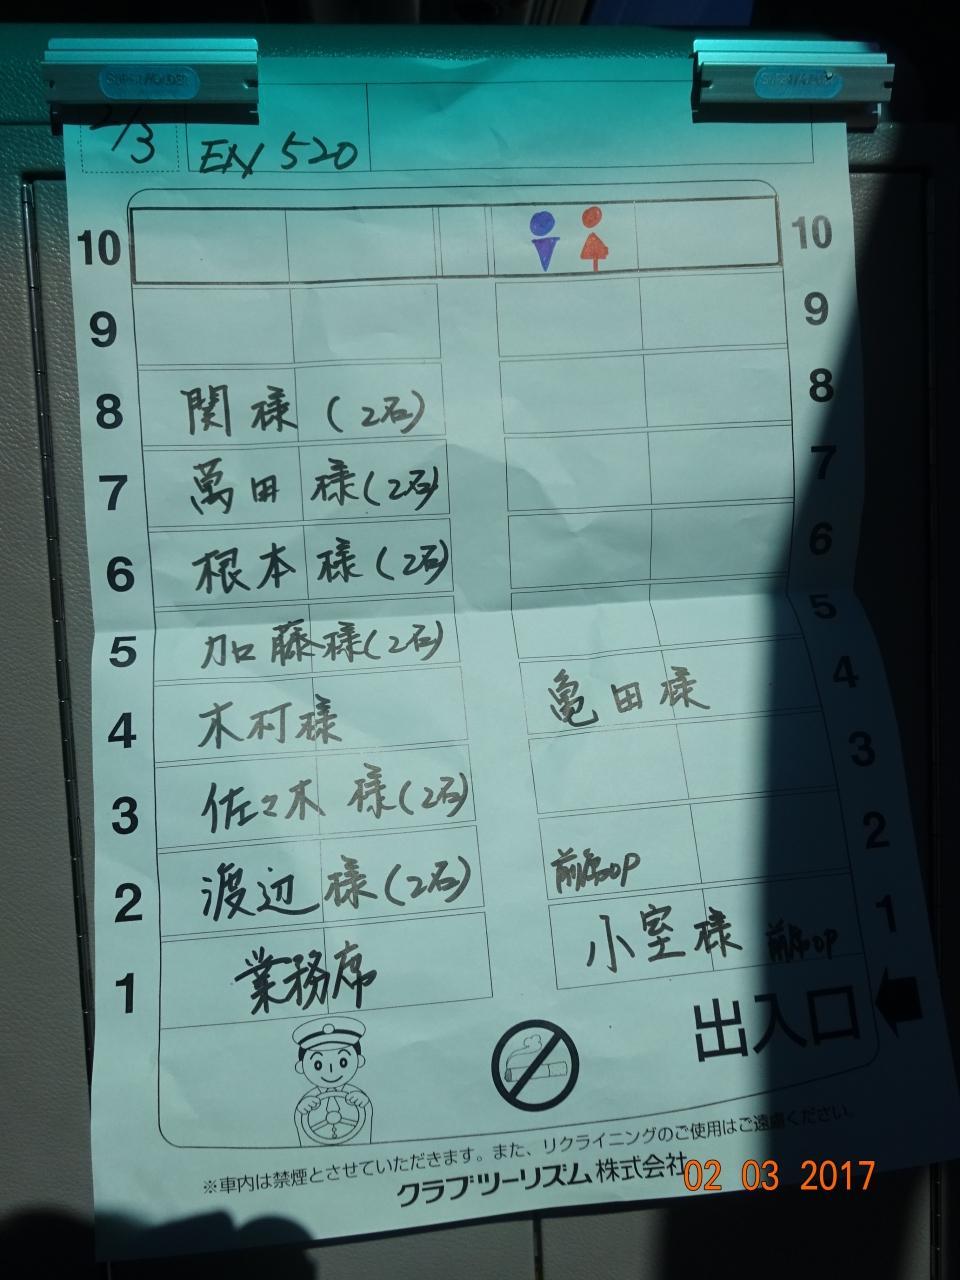 SUPER HOLDER SUPER HOLDER
2/3 EXY 520
10 10
9 9
8 関様 (2名) 8
7 萬田 様(2名) 7
6 根本 様(2名) 6
5 加藤様(2名) 5
4 木村様 亀田様 4
3 佐々木 様(2名) 3
2 渡辺 様(2名) 前席OP 2
1 業務席 小室様 前席OP 1
出入口
※車内は禁煙とさせていただきます。また、リクライニングのご使用はご遠慮ください。
クラブツーリズム株式会社
02 03 2017